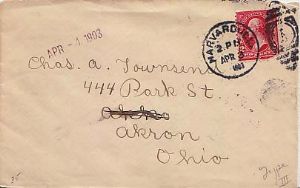 APR - 1 1903
HARVARD, ILL.
2 PM
APR
1903
Chas. A. Townsend
444 Park St.
Akron
Ohio
Type
III